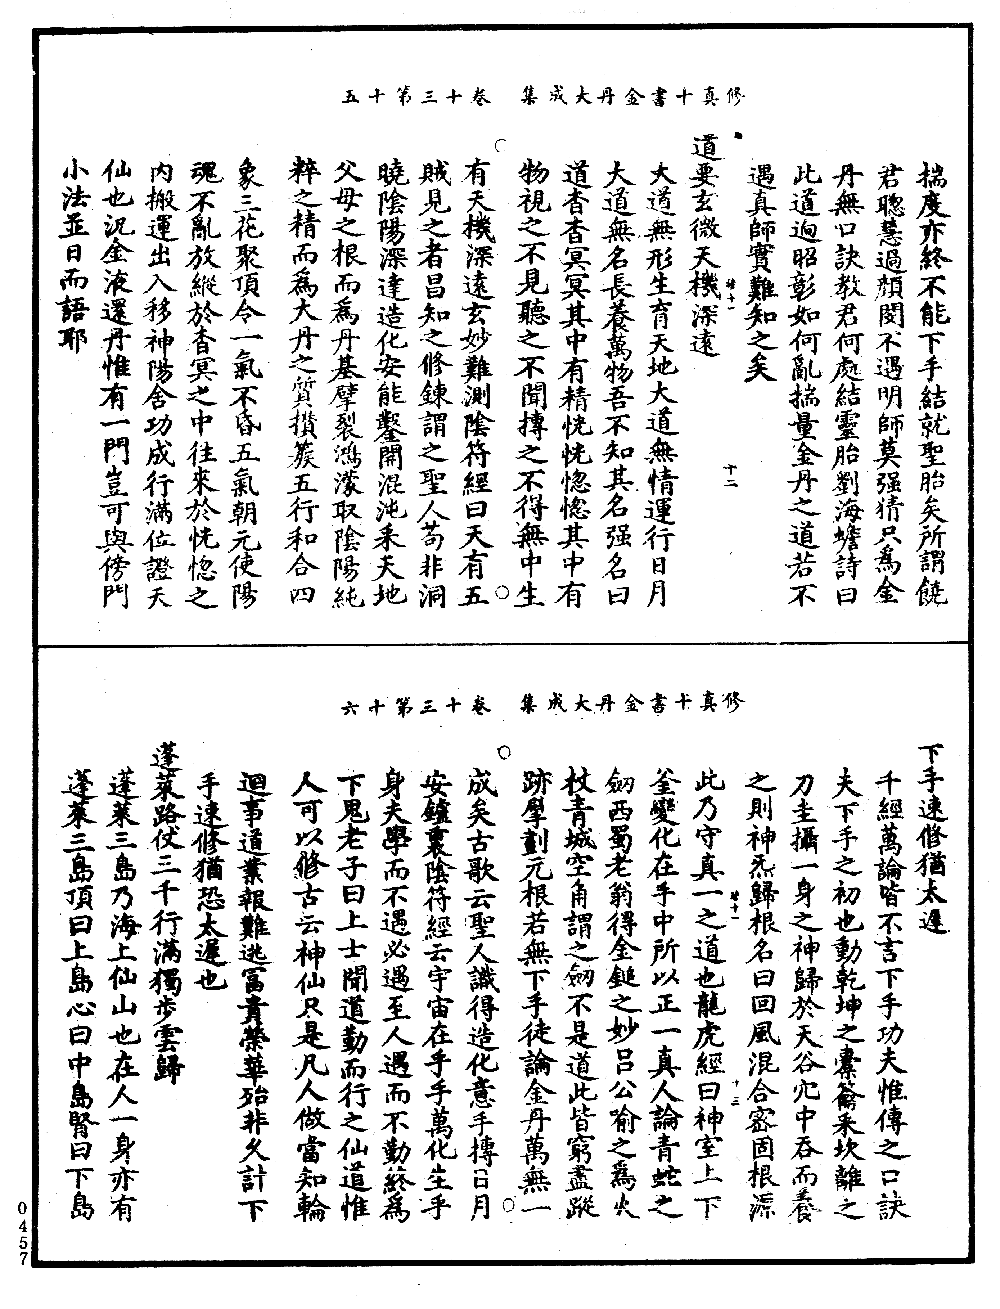 修真十書金丹大成集　卷十三第十五
揣度亦終不能下手結就聖胎矣所謂饒
君聰慧過顏閔不遇明師莫强猜只為金
丹無口訣教君何處結靈胎劉海蟾詩曰
此道逈昭彰如何亂揣量金丹之道若不
遇真師實難知之矣
道要玄微天機深遠
大道無形生育天地大道無情運行日月
大道無名長養萬物吾不知其名强名曰
道杳杳冥冥其中有精恍恍惚惚其中有
物視之不見聽之不聞摶之不得無中生
有天機深遠玄妙難測陰符經曰天有五
賊見之者昌知之修鍊謂之聖人苟非洞
曉陰陽深達造化安能鑿開混沌采天地
父母之根而為丹基擘裂鴻濛取陰陽純
粹之精而為大丹之質攢蔟五行和合四
象三花聚頂令一氣不昏五氣朝元使陽
魂不亂放縱於杳冥之中往來於恍惚之
內搬運出入移神陽舍功成行滿位證天
仙也況金液還丹惟有一門豈可與傍門
小法並日而語耶
十二
修真十書金丹大成集　卷十三第十六
下手速修猶太遲
千經萬論皆不言下手功夫惟傳之口訣
夫下手之初也動乾坤之橐籥采坎離之
刀圭攝一身之神歸於天谷穴中吞而養
之則神炁歸根名曰回風混合密固根源
此乃守真一之道也龍虎經曰神室上下
釜變化在手中所以正一真人論青蛇之
劒西蜀老翁得金鎚之妙呂公喻之為火
杖青城空角謂之劒不是道此皆窮盡蹤
跡擘劃元根若無下手徒論金丹萬無一
成矣古歌云聖人識得造化意手摶日月
安鑪裏陰符經云宇宙在乎手萬化生乎
身夫學而不遇必遇至人遇而不勤終為
下鬼老子曰上士聞道勤而行之仙道惟
人可以修古云神仙只是凡人做當知輪
迴事道業報難逃富貴榮華殆非久計下
手速修猶恐太遲也
蓬萊路仗三千行滿獨步雲歸
蓬萊三島乃海上仙山也在人一身亦有
蓬萊三島頂曰上島心曰中島腎曰下島
十二
0457